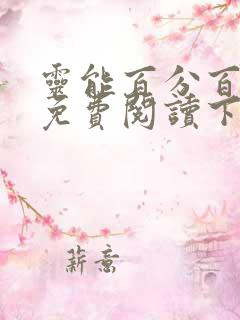 靈能百分百
免費閱讀下
薪意